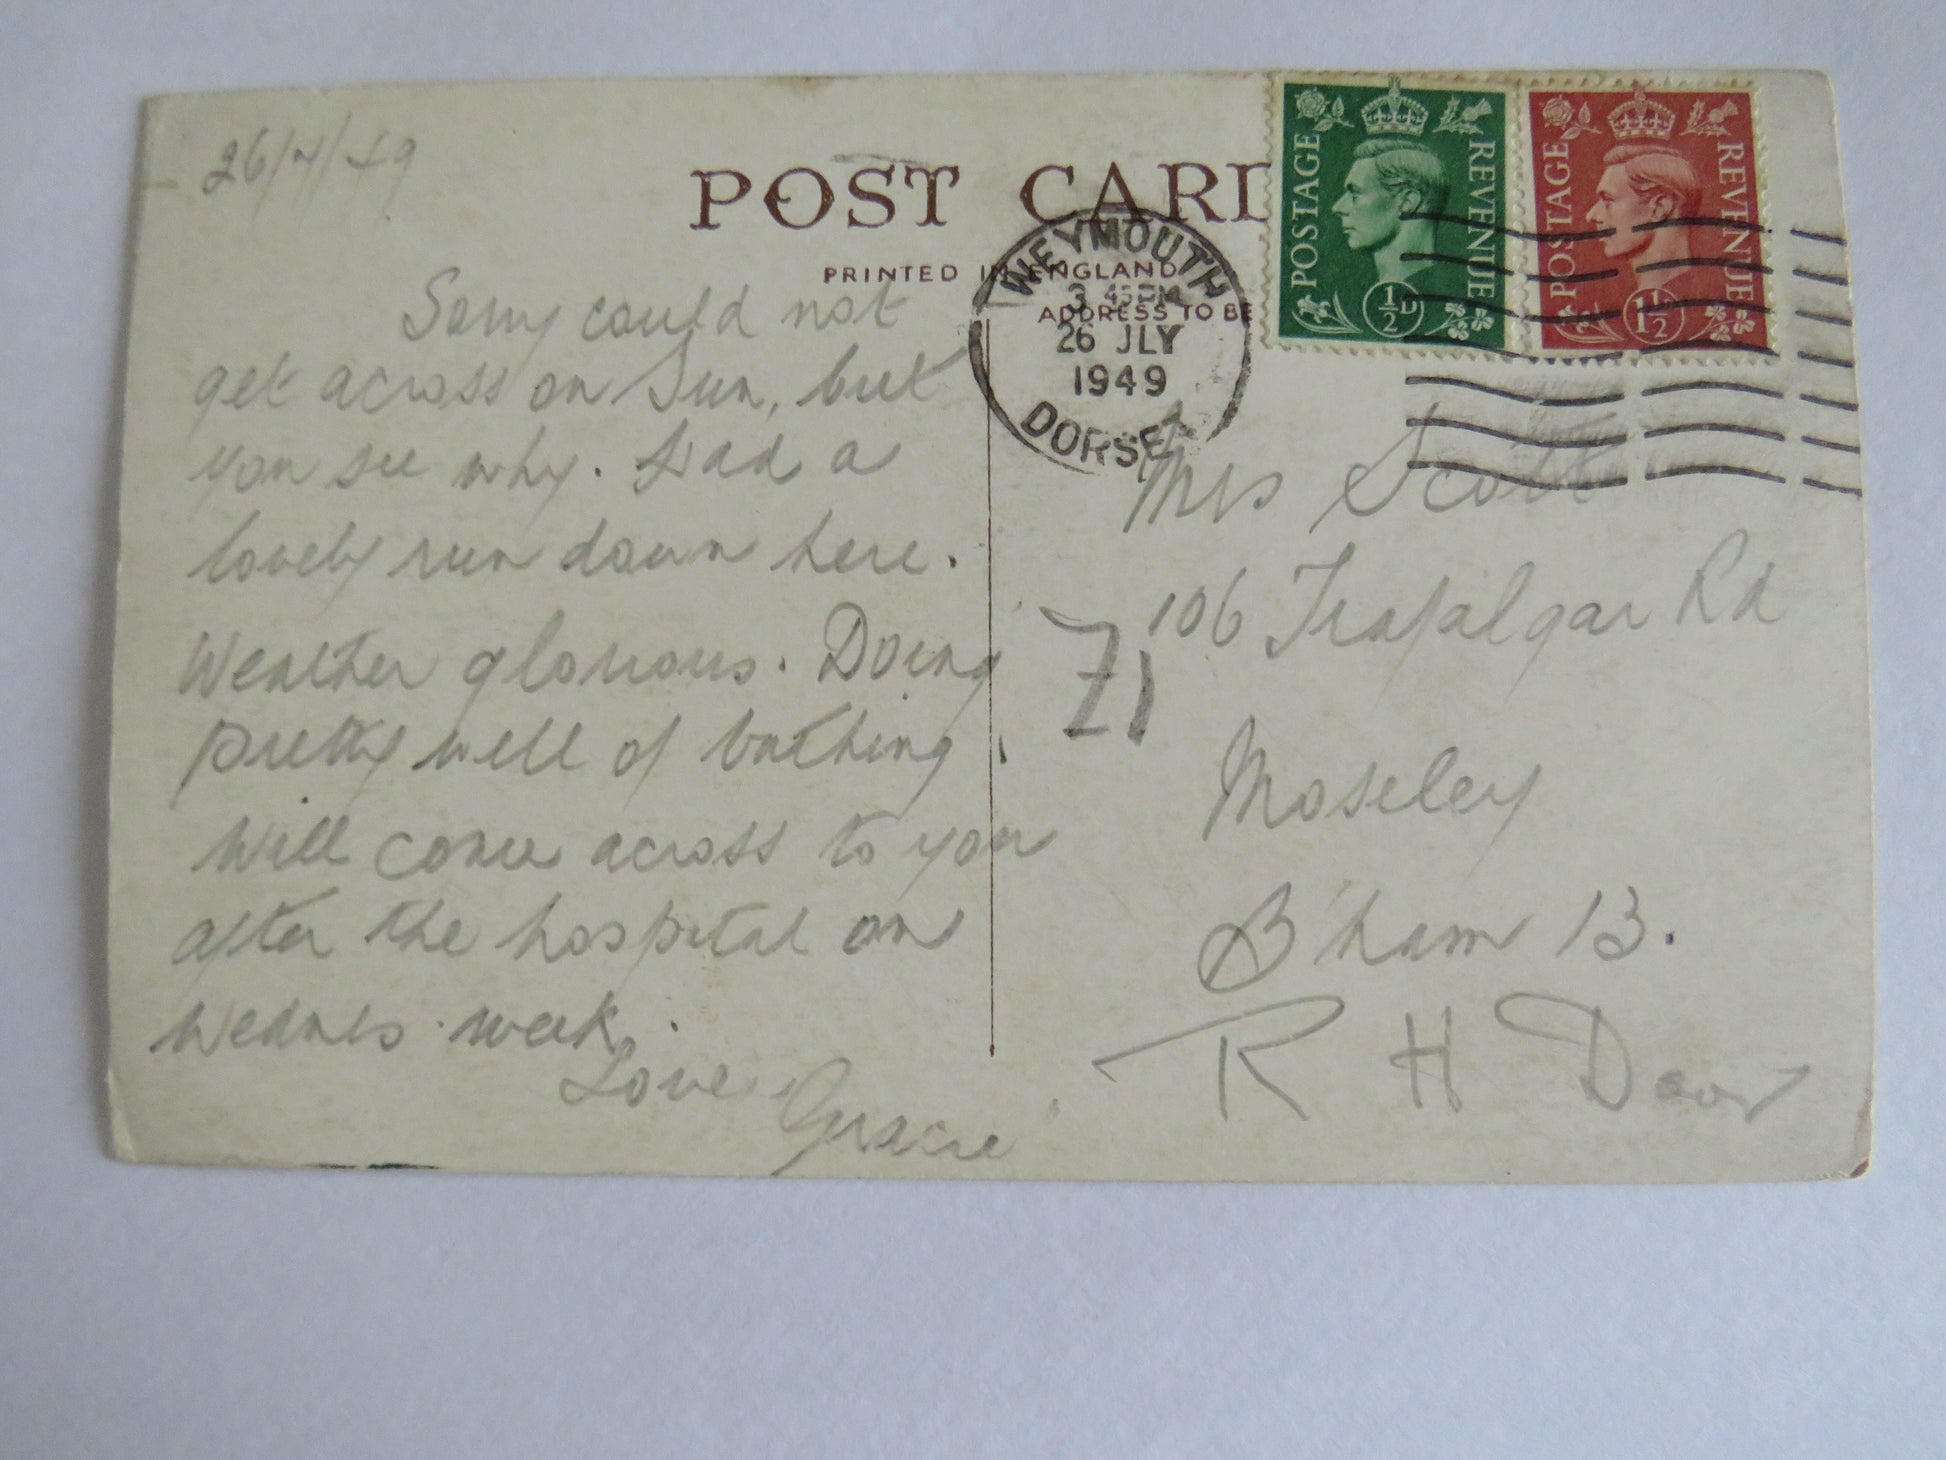 26/7/49
POST CARD
PRINTED IN ENGLAND
ADDRESS TO BE
WEYMOUTH
3 45 PM
26 JLY
1949
DORSET
POSTAGE REVENUE
½D
POSTAGE REVENUE
1½
Sorry could not
get across on Sun, but
you see why. Had a
lovely run down here.
Weather glorious. Doing
pretty well of bathing.
Will come across to you
after the hospital on
Wednes. week.
Love,
Gracie
Mrs Scott
106 Trafalgar Rd
71
Moseley
B'ham 13.
R H Door